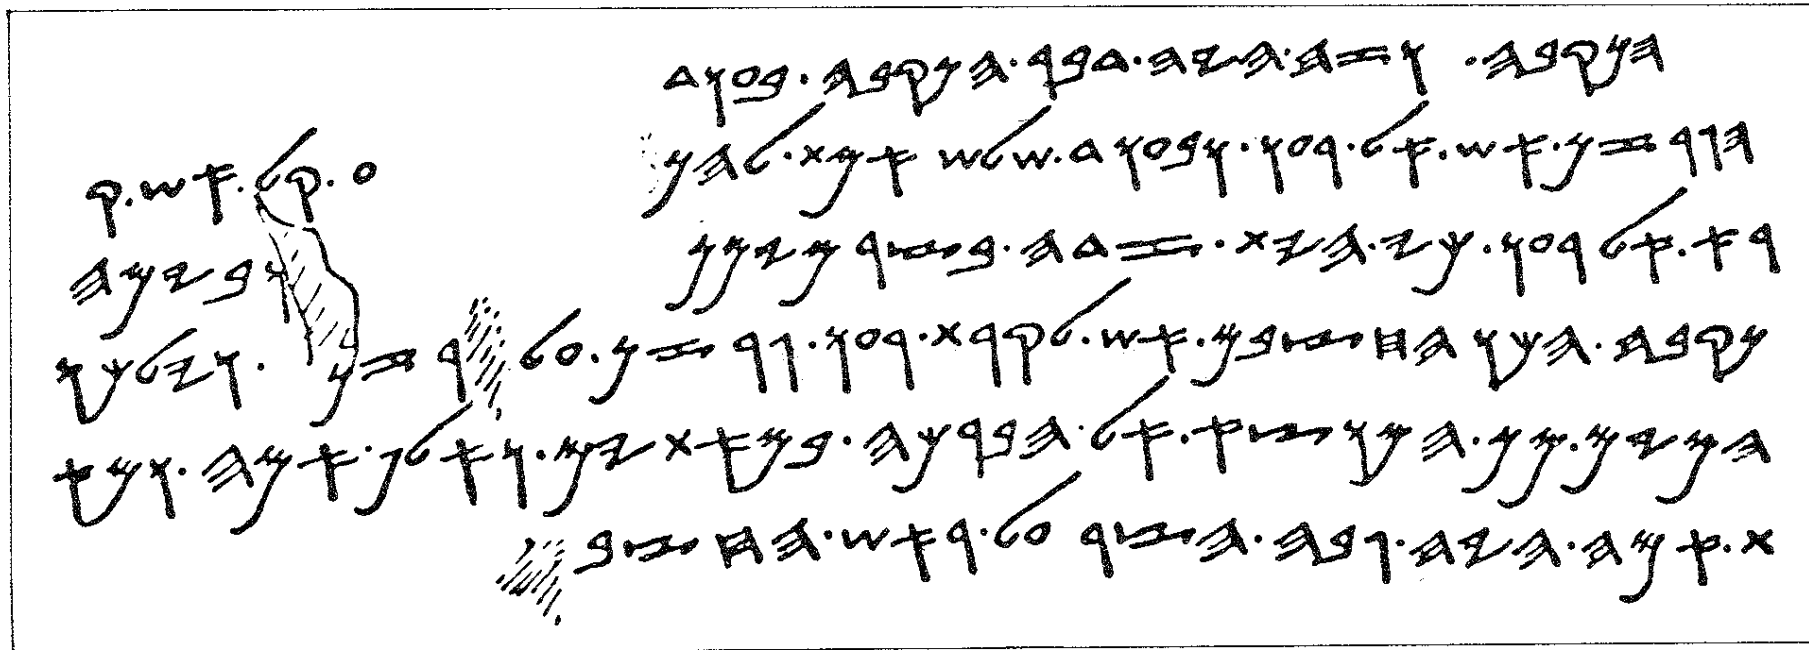 𐤄𐤍𐤒𐤁𐤄 . 𐤅𐤆𐤄 . 𐤄𐤉𐤄 . 𐤃𐤁𐤓 . 𐤄𐤍𐤒𐤁𐤄 . 𐤁𐤏𐤅𐤃
𐤄𐤂𐤓𐤆𐤍 . 𐤀𐤔 . 𐤀𐤋 . 𐤓𐤏𐤅 . 𐤅𐤁𐤏𐤅𐤃 . 𐤔𐤋𐤔 𐤀𐤌𐤕 . 𐤋𐤄𐤍 𐤏 . 𐤒𐤋 . 𐤀𐤔 . 𐤒
𐤓𐤀 . 𐤀𐤋 𐤓𐤏𐤅 . 𐤊𐤉 . 𐤄𐤉𐤕 . 𐤆𐤃𐤄 . 𐤁𐤑𐤓 𐤌𐤉𐤌𐤍 𐤅𐤁𐤉𐤌𐤄
𐤍𐤒𐤁𐤄 . 𐤄𐤊𐤅 𐤄𐤇𐤑𐤁𐤌 . 𐤀𐤔 . 𐤋𐤒𐤓𐤕 . 𐤓𐤏𐤅 . 𐤂𐤓𐤆𐤍 . 𐤏𐤋 𐤓𐤆𐤍 . 𐤅𐤉𐤋𐤊𐤅
𐤄𐤌𐤉𐤌 . 𐤌𐤍 . 𐤄𐤌𐤅𐤑𐤀 . 𐤀𐤋 . 𐤄𐤁𐤓𐤊𐤄 . 𐤁𐤌𐤀𐤕𐤉𐤌 . 𐤅𐤀𐤋𐤐 . 𐤀𐤌𐤄 . 𐤅𐤌𐤀
𐤕 . 𐤀𐤌𐤄 . 𐤄𐤉𐤄 . 𐤂𐤁𐤄 . 𐤄𐤑𐤓 𐤏𐤋 . 𐤓𐤀𐤔 . 𐤄𐤇𐤑𐤁